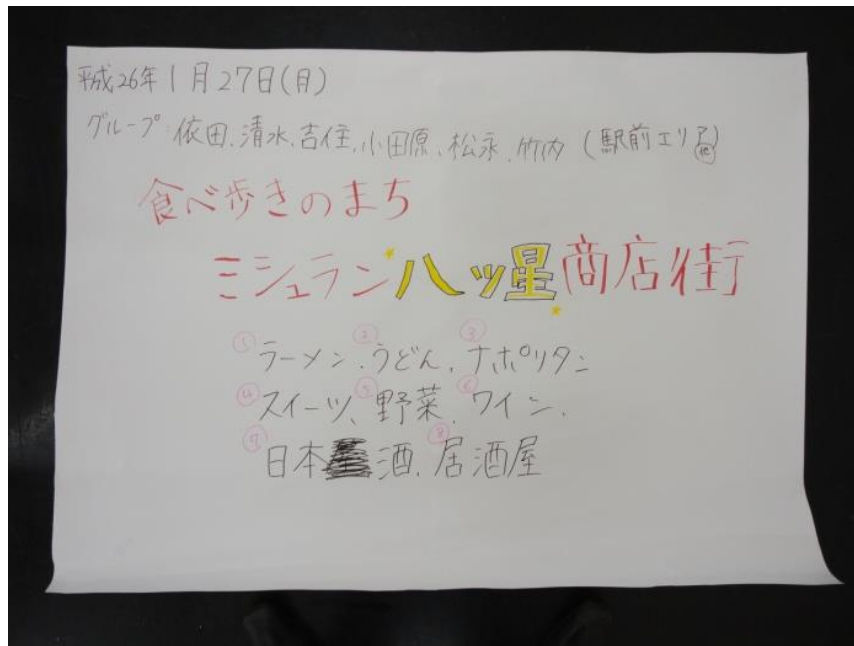 平成26年1月27日(月)
グループ 依田、清水、吉住、小田原、松永、竹内 (駅前エリア)
食べ歩きのまち
ミシュラン八ツ星商店街
①ラーメン、②うどん、③ナポリタン
④スイーツ、⑤野菜、⑥ワイン、
⑦日本酒、⑧居酒屋